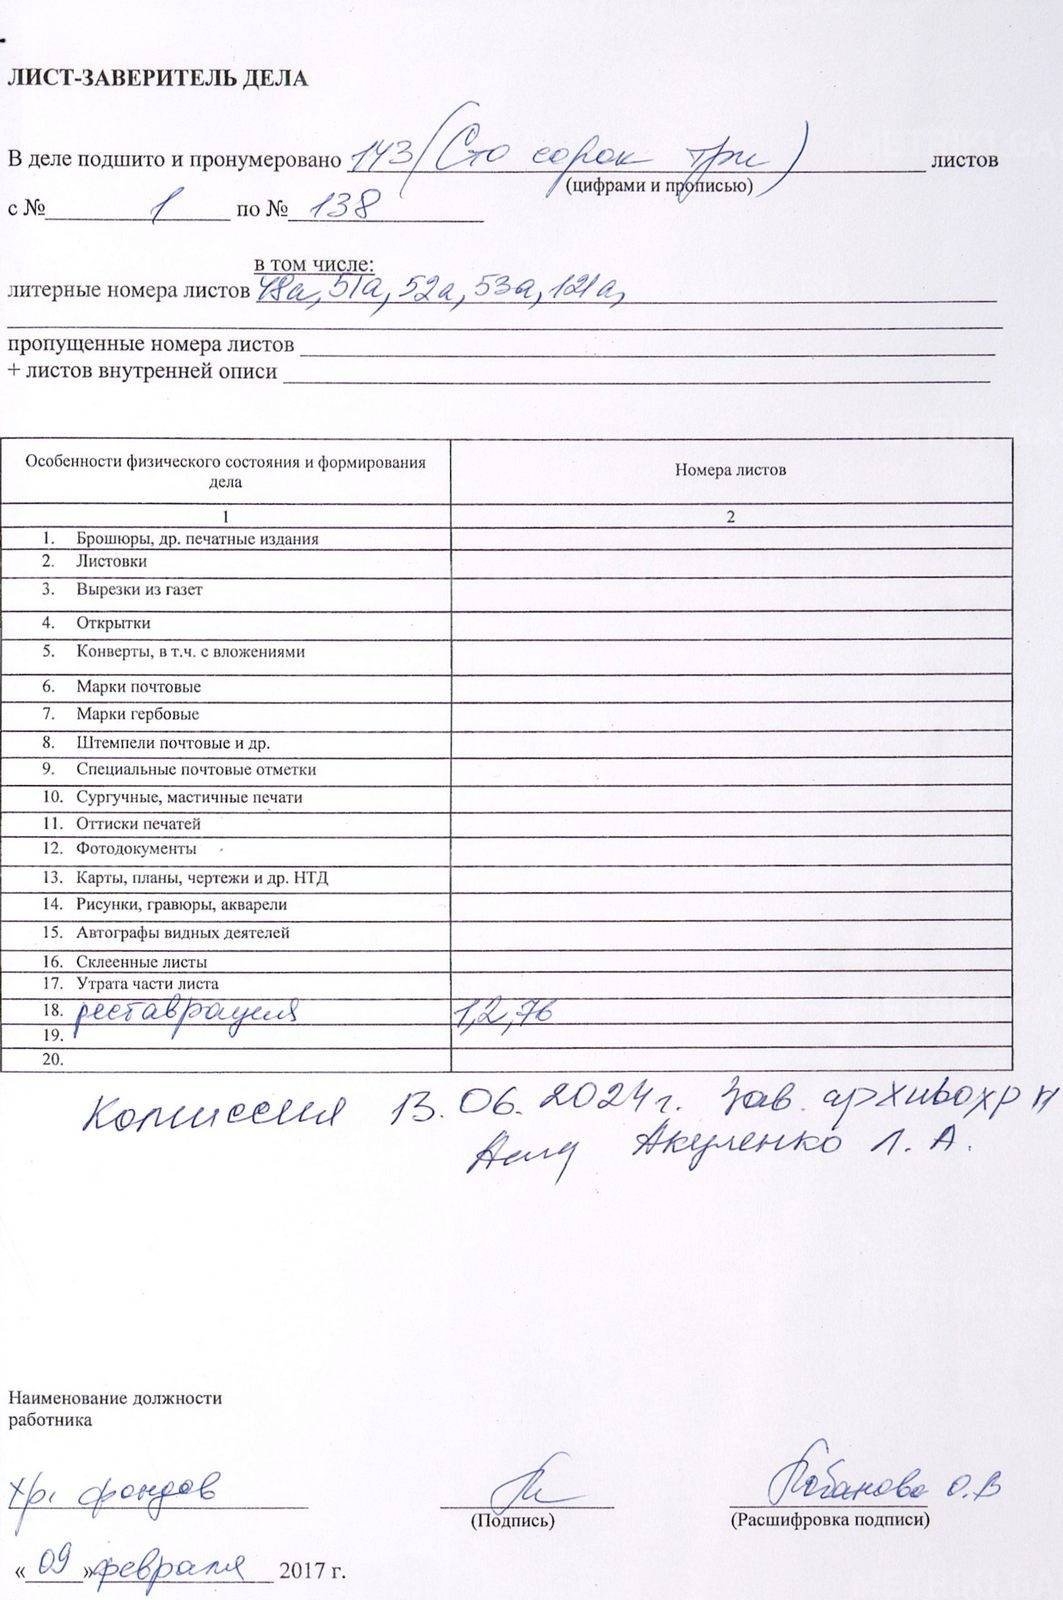 ЛИСТ-ЗАВЕРИТЕЛЬ ДЕЛА
В деле подшито и пронумеровано 143 (Сто сорок три) листов
(цифрами и прописью)
с № 1 по № 138
в том числе:
литерные номера листов 48а, 51а, 52а, 53а, 121а,
пропущенные номера листов
+ листов внутренней описи
Особенности физического состояния и формирования дела
Номера листов
1 2
1. Брошюры, др. печатные издания
2. Листовки
3. Вырезки из газет
4. Открытки
5. Конверты, в т.ч. с вложениями
6. Марки почтовые
7. Марки гербовые
8. Штемпели почтовые и др.
9. Специальные почтовые отметки
10. Сургучные, мастичные печати
11. Оттиски печатей
12. Фотодокументы
13. Карты, планы, чертежи и др. НТД
14. Рисунки, гравюры, акварели
15. Автографы видных деятелей
16. Склеенные листы
17. Утрата части листа
18. реставрация 1,2,76
19.
20.
Комиссия 13.06.2024г. Зав. архивохр
Акуленко Л. А.
Наименование должности
работника
хр. фондов
(Подпись) (Расшифровка подписи)
О.В
«09» февраля 2017 г.